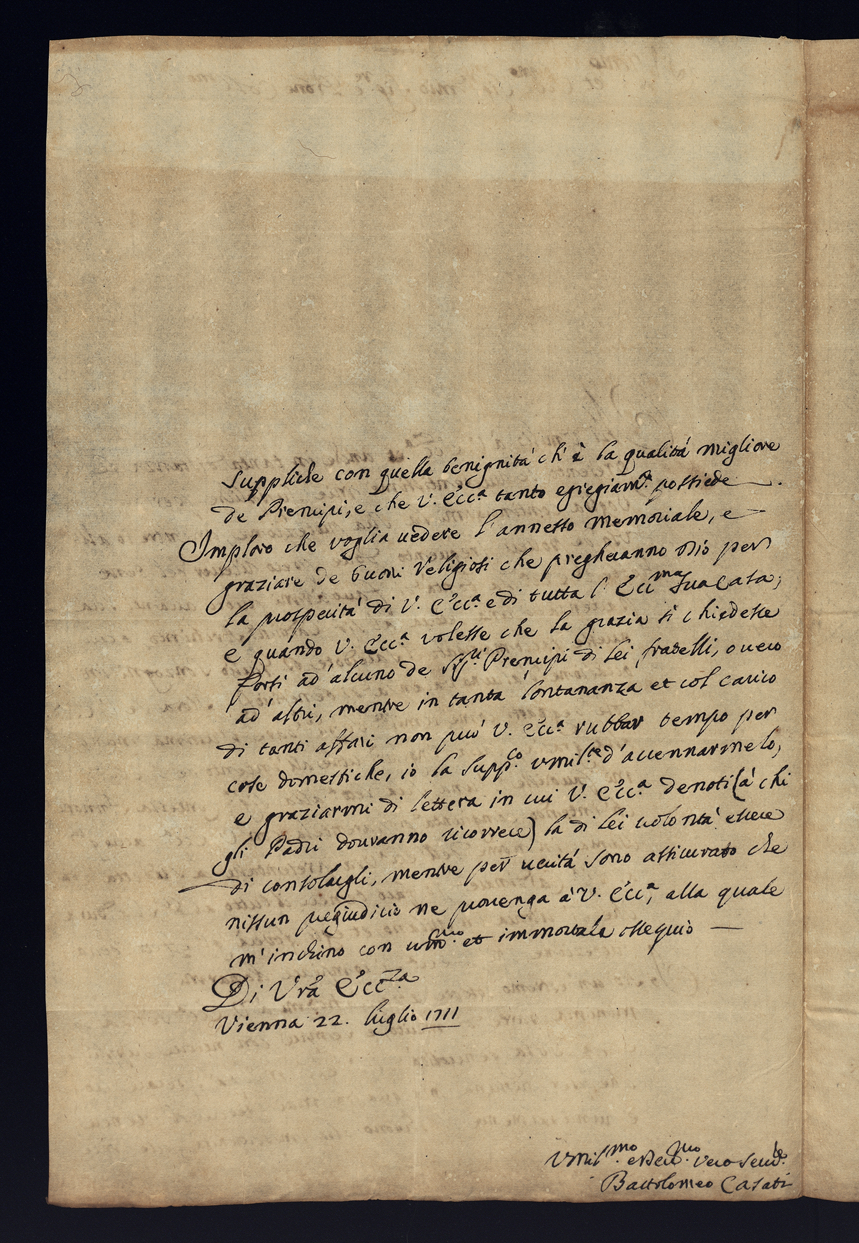 suppliche con quella benignità ch'è la qualità migliore
de Prencipi, e che V. Ecc.a tanto egregiam.te possiede.
Imploro che voglia uedere l'annesso memoriale, e
graziare de buoni religiosi che pregheranno Dio per
la prosperità di V. Ecc.a e di tutta l'Ecc.ma sua Casa;
e quando V. Ecc.a volesse che la grazia si chiedesse
forsi ad'alcuno de Sig.ri Prencipi di lei fratelli, o uero
ad'altri, mentre in tanta lontananza et col carico
di tanti affari non può V. Ecc.a rubbar tempo per
cose domestiche, io la supp.co vmil.te d'accennarmelo,
e graziarmi di lettera in cui V. Ecc.a denoti (à chi
gli Padri douranno ricorrere) la di lei uolontà essere
di consolargli, mentre per uerità sono assicurato che
nissun pregiudicio ne prouenga à V. Ecc.a, alla quale
m'inchino con um.mo et immortale ossequio
Di Vrã Ecc.za
Vienna 22. luglio 1711
Vmil.mo e Deu.mo vero seru.re
Bartolomeo Casati